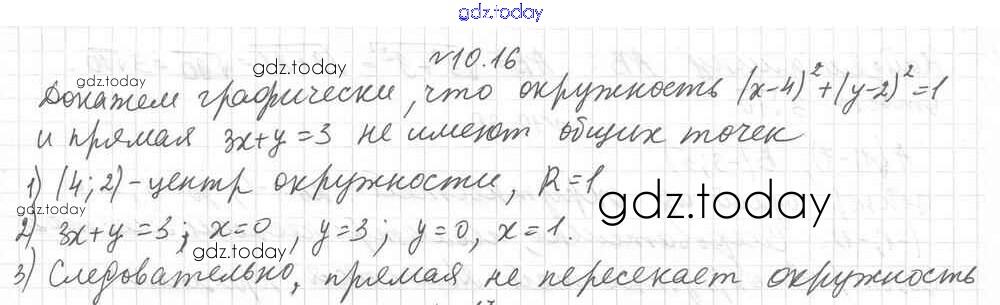 gdz.today
№10.16
gdz.today
Докажем графически, что окружность (x-4)²+(y-2)²=1
и прямая 3x+y=3 не имеют общих точек
gdz.today
1) (4;2)-центр окружности, R=1
gdz.today
gdz.today
2) 3x+y=3; x=0, y=3; y=0, x=1.
gdz.today
3) Следовательно, прямая не пересекает окружность